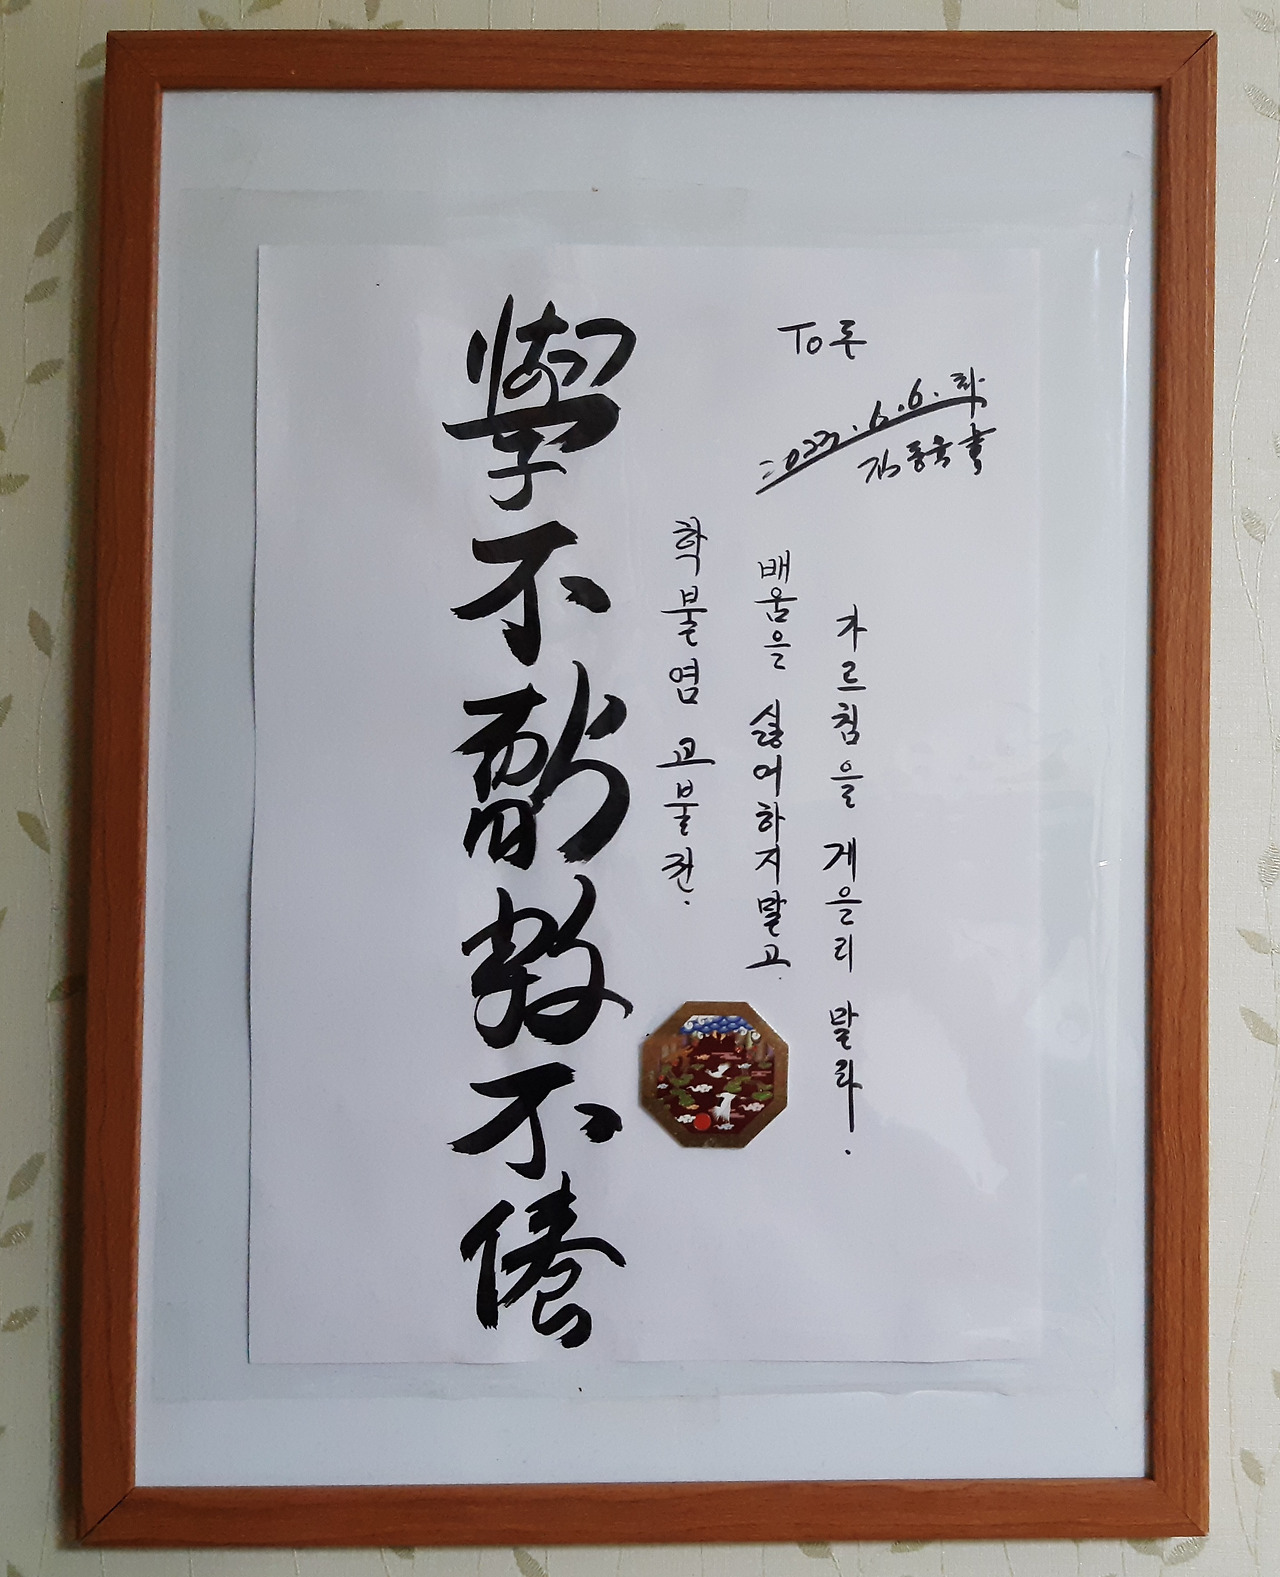 學不厭教不倦
학불염 교불권.
배움을 싫어하지말고.
가르침을 게을리 말라.
To
2023.6.6.화
書